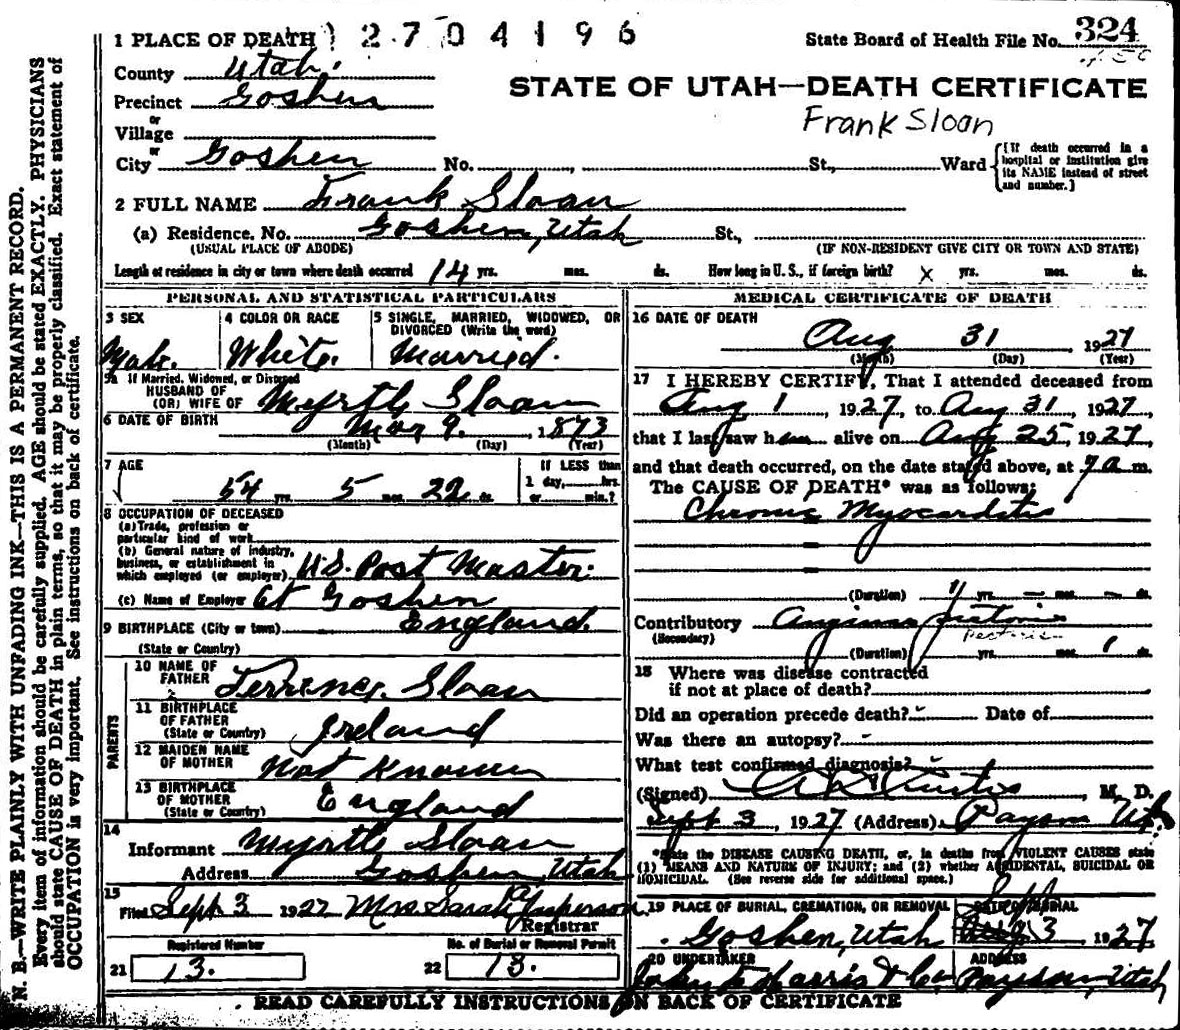 1 PLACE OF DEATH 2704196
State Board of Health File No. 324
County Utah.
STATE OF UTAH—DEATH CERTIFICATE
Precinct Goshen
Frank Sloan
or
Village
or
City Goshen No. , St., Ward
[If death occurred in a hospital or institution give its NAME instead of street and number.]
2 FULL NAME Frank Sloan
(a) Residence. No. Goshen, Utah St.,
(USUAL PLACE OF ABODE) (IF NON-RESIDENT GIVE CITY OR TOWN AND STATE)
Length of residence in city or town where death occurred 14 yrs. mos. ds. How long in U. S., if foreign birth? x yrs. mos. ds.
PERSONAL AND STATISTICAL PARTICULARS
3 SEX
Male.
4 COLOR OR RACE
White.
5 SINGLE, MARRIED, WIDOWED, OR
DIVORCED (Write the word)
Married.
5a If Married, Widowed, or Divorced
HUSBAND OF
(OR) WIFE OF Myrtle Sloan
6 DATE OF BIRTH Mar 9. 1873
(Month) (Day) (Year)
7 AGE
54 yrs. 5 mos. 22 ds.
If LESS than
1 day, hrs.
or min.?
8 OCCUPATION OF DECEASED
(a) Trade, profession or
particular kind of work
(b) General nature of industry,
business, or establishment in
which employed (or employer) U.S. Post Master.
(c) Name of Employer At Goshen
9 BIRTHPLACE (City or town) England.
(State or Country)
PARENTS
10 NAME OF
FATHER Terrence Sloan
11 BIRTHPLACE
OF FATHER
(State or Country) Ireland
12 MAIDEN NAME
OF MOTHER Not Known
13 BIRTHPLACE
OF MOTHER
(State or Country) England
14
Informant Myrtle Sloan
Address Goshen, Utah
15
Filed Sept 3 1927 Mrs. Sarah
Registrar
Registered Number No. of Burial or Removal Permit
21 13. 22 13.
MEDICAL CERTIFICATE OF DEATH
16 DATE OF DEATH
Aug 31 1927
(Month) (Day) (Year)
17 I HEREBY CERTIFY, That I attended deceased from
Aug 1, 1927, to Aug 31, 1927,
that I last saw him alive on Aug 25, 1927,
and that death occurred, on the date stated above, at 7 a m.
The CAUSE OF DEATH* was as follows:
Chronic Myocarditis
(Duration) yrs. mos. ds.
Contributory Angina Pectoris
(Secondary) Pectoris
(Duration) yrs. mos. 1 ds.
18 Where was disease contracted
if not at place of death?
Did an operation precede death? Date of
Was there an autopsy?
What test confirmed diagnosis?
(Signed) Curtis, M. D.
Sept 3, 1927 (Address) Payson Ut
*State the DISEASE CAUSING DEATH, or, in deaths from VIOLENT CAUSES state
(1) MEANS AND NATURE OF INJURY; and (2) whether ACCIDENTAL, SUICIDAL OR
HOMICIDAL. (See reverse side for additional space.)
19 PLACE OF BURIAL, CREMATION, OR REMOVAL
Goshen, Utah
DATE OF BURIAL
Sept
Aug 3 1927
20 UNDERTAKER
Harris & Co
ADDRESS
Payson, Utah
READ CAREFULLY INSTRUCTIONS ON BACK OF CERTIFICATE
N. B.—WRITE PLAINLY WITH UNFADING INK—THIS IS A PERMANENT RECORD.
Every item of information should be carefully supplied. AGE should be stated EXACTLY. PHYSICIANS
should state CAUSE OF DEATH in plain terms, so that it may be properly classified. Exact statement of
OCCUPATION is very important. See instructions on back of certificate.